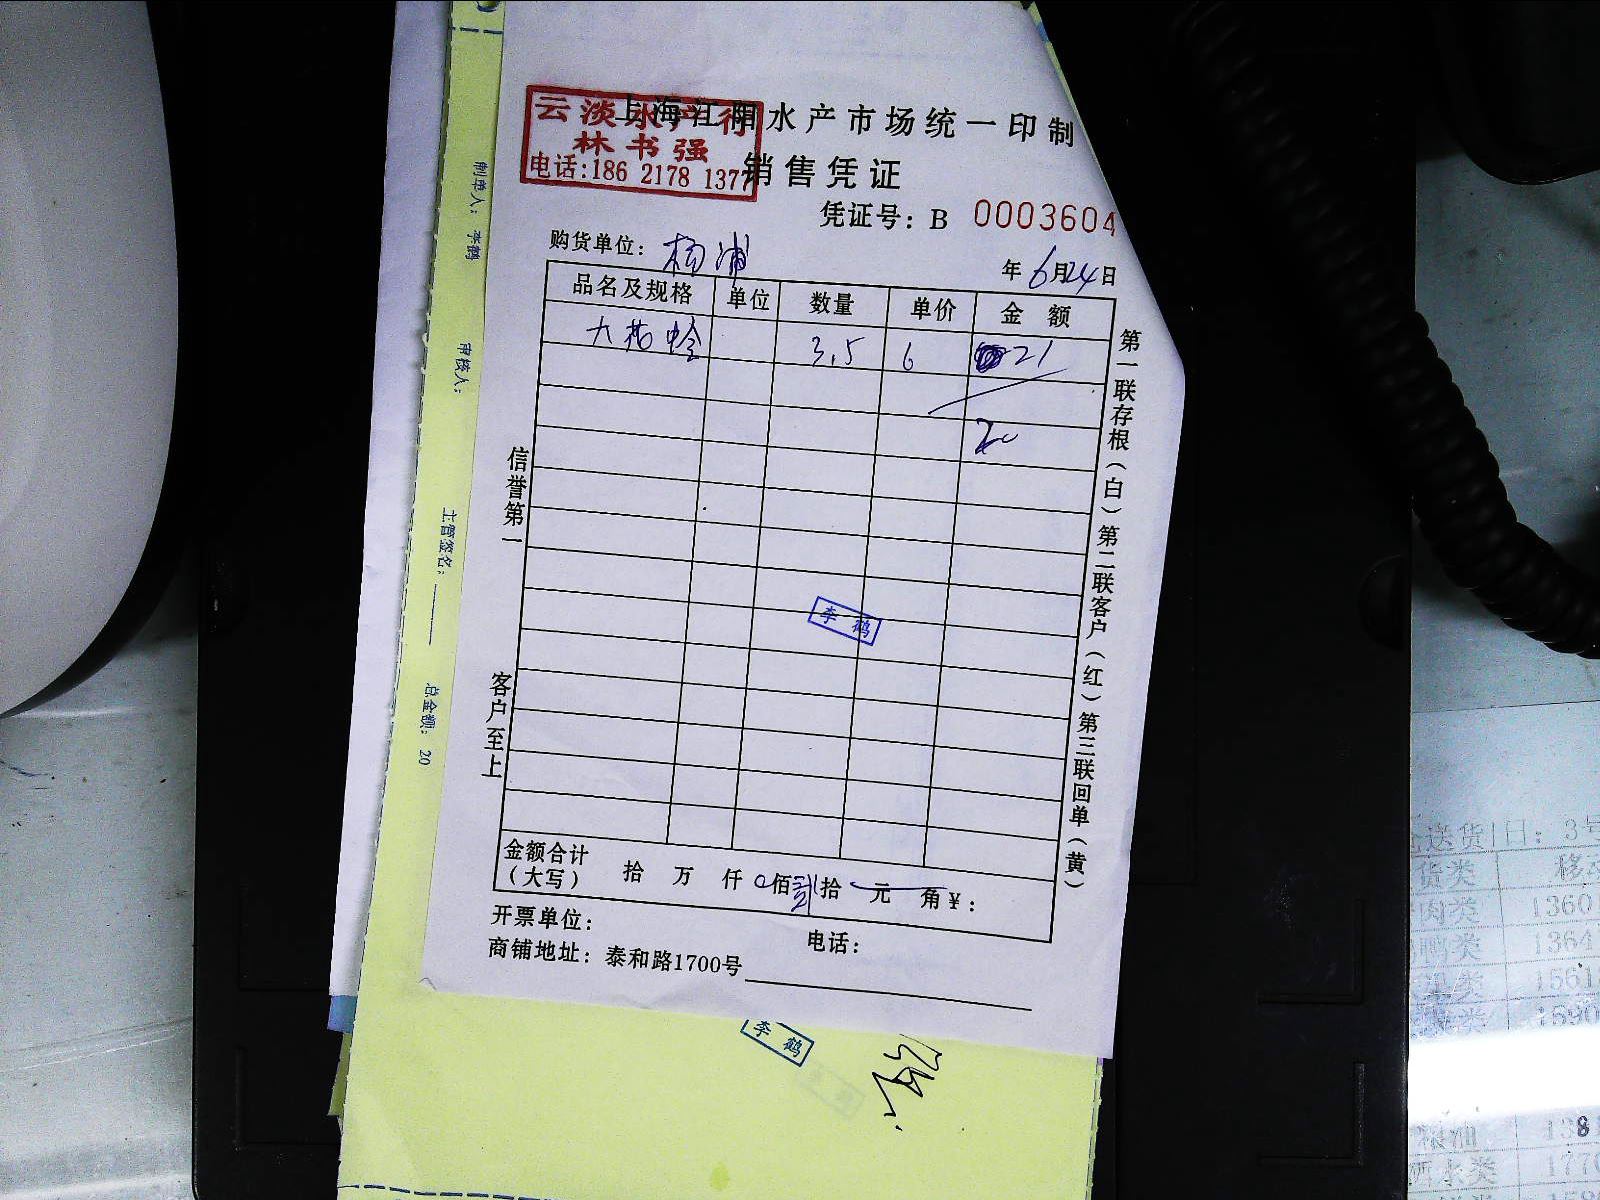 上海江阳水产市场统一印制
云淡水产行
林书强
电话:186 2178 1377
销售凭证
凭证号：B 0003604
购货单位：杨浦
年6月24日
品名及规格 单位 数量 单价 金额
大花蛤 3.5 6 21
20
李鹤
金额合计（大写） 拾 万 仟 0佰贰拾 元 角¥：
开票单位： 电话：
商铺地址：泰和路1700号
信誉第一 客户至上
第一联存根（白）第二联客户（红）第三联回单（黄）
制单人：李鹤 审核人： 主管签名： 总金额：20
李鹤
送货日：3号
货类 移动
肉类 1360
鸭类 1364
1561
类 1590
粮油 1381
类 1770